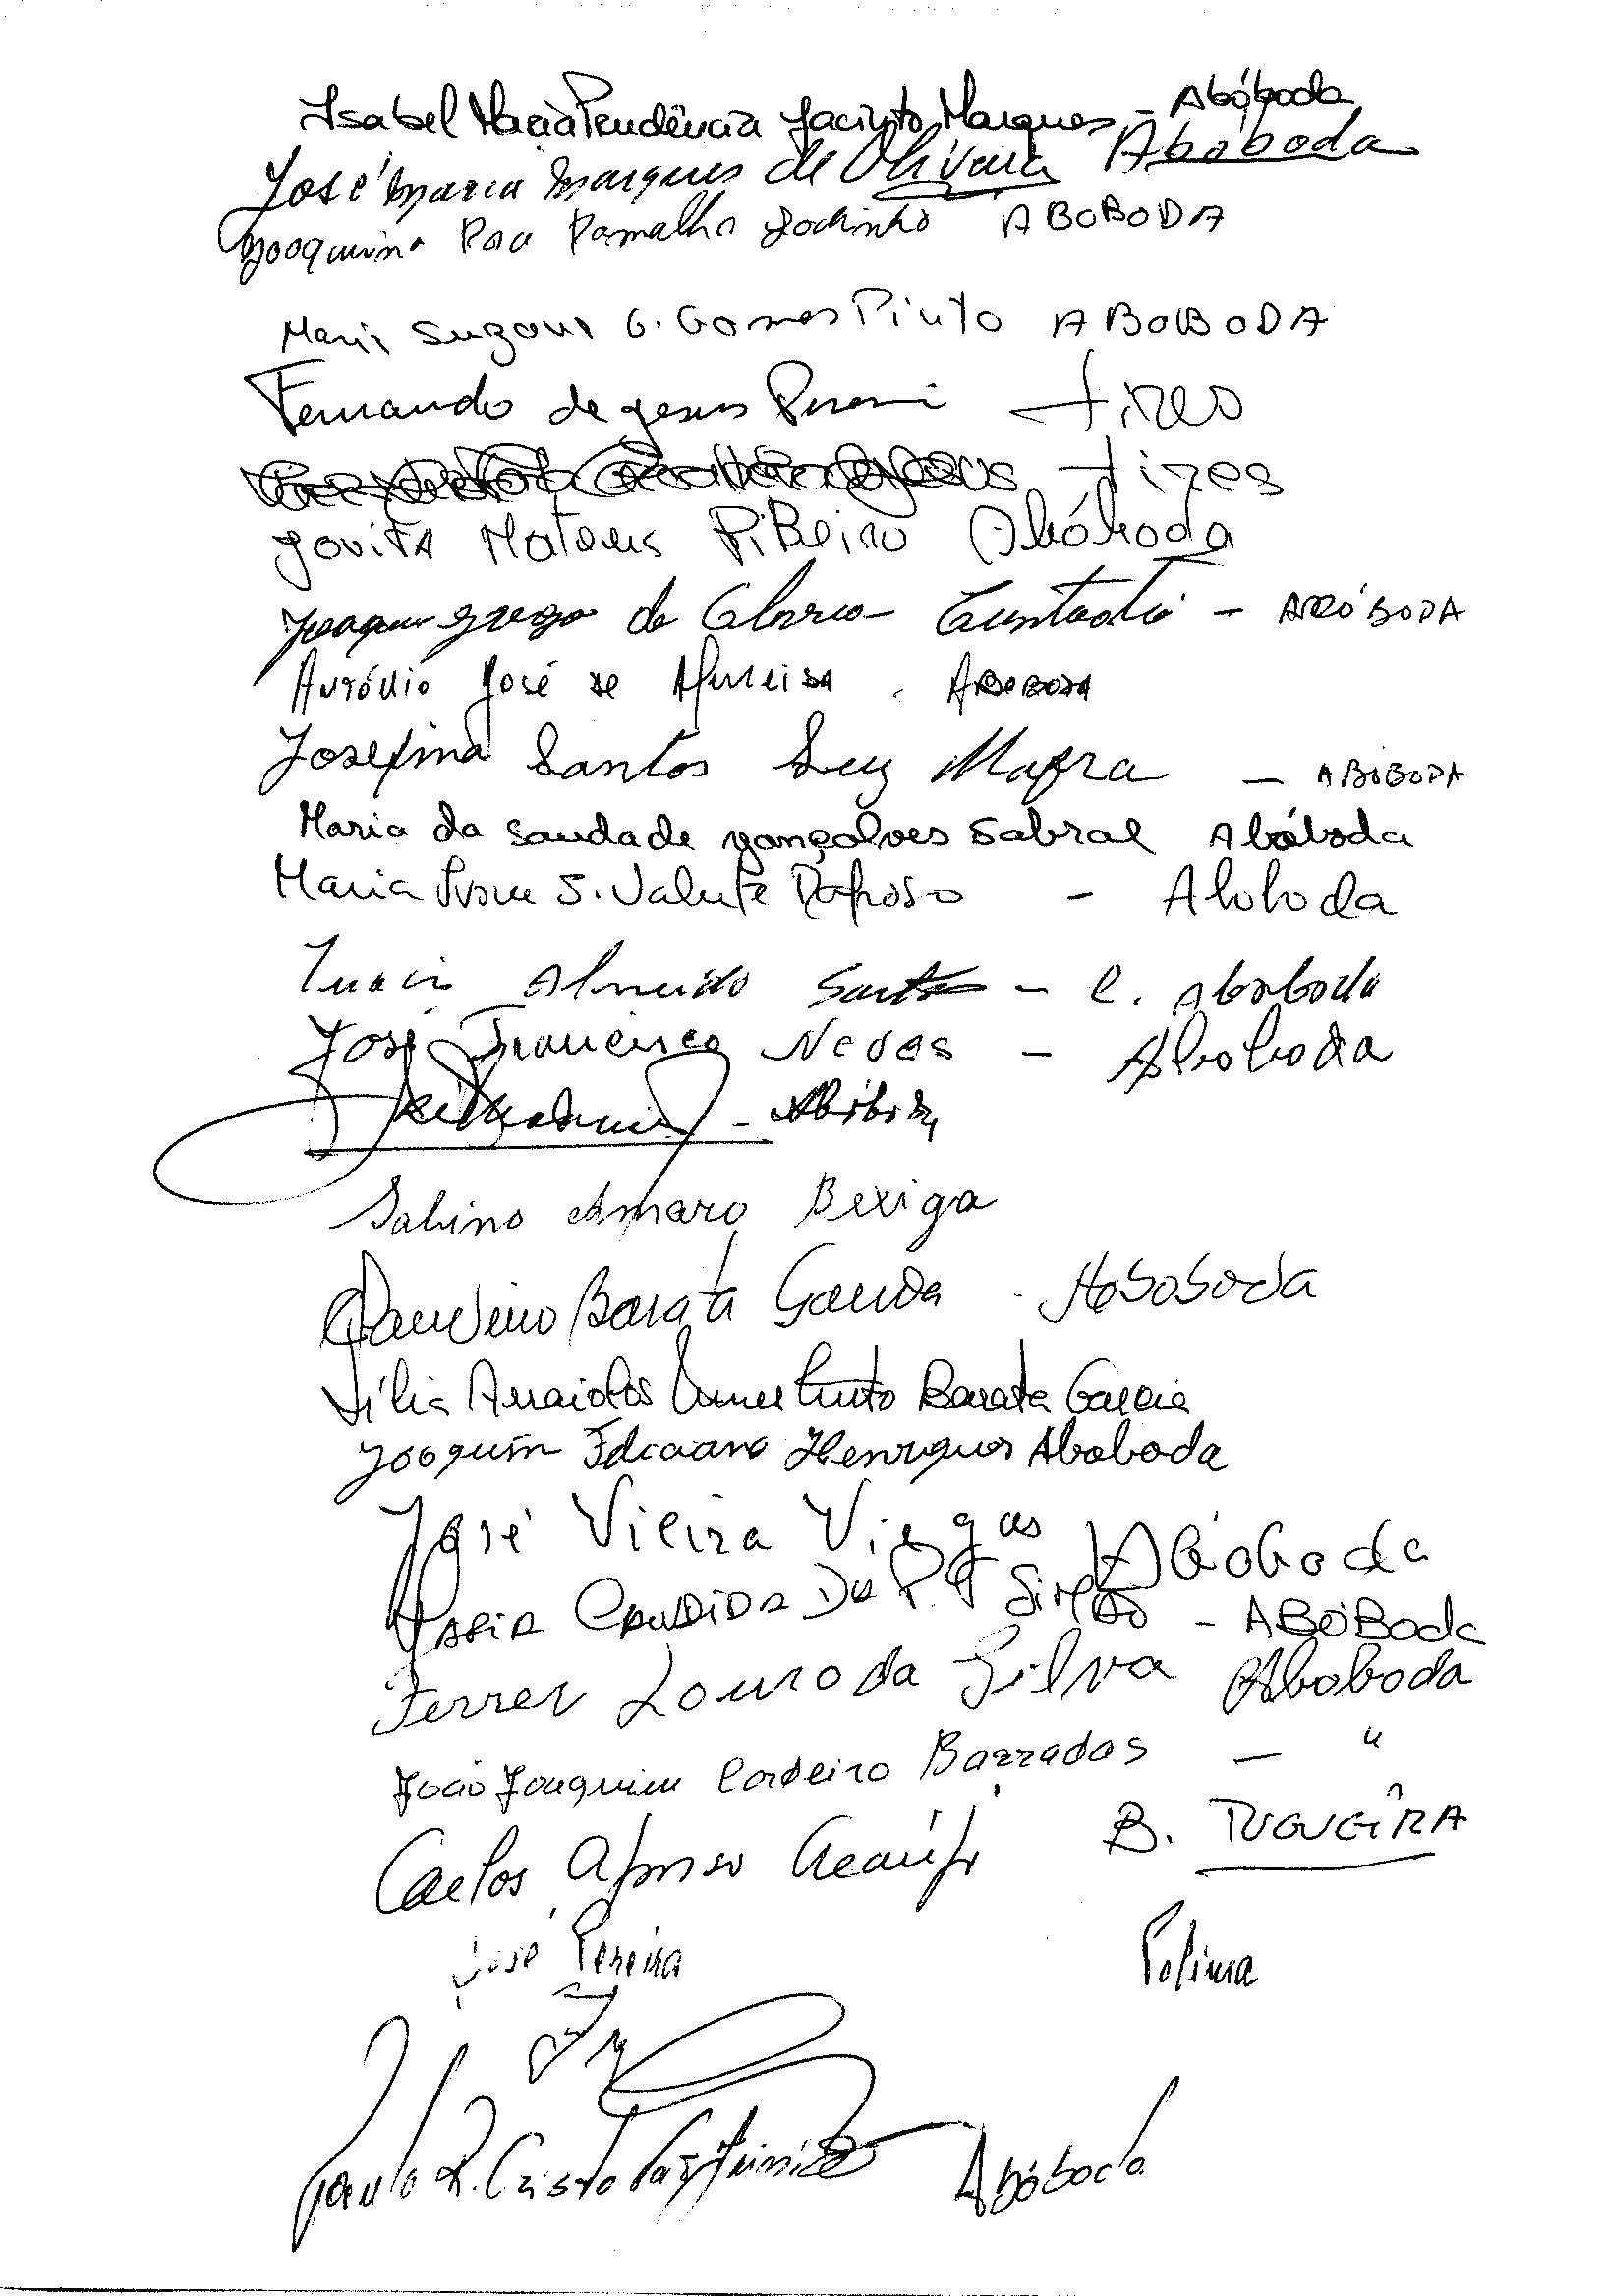 Isabel Maria Prudência Jacinto Marques - Abóboda
José Maria Marques de Oliveira Abóboda
Joaquina Ramalho Godinho ABOBODA
Maria Suzana G. Gomes Pinto ABOBODA
Fernando de Jesus Tires
Tires
Jovita Mateus Ribeiro Abóboda
Joaquim da Glória - ABÓBODA
António José de Almeida. ABOBODA
Josefina Santos Luz Mafra - ABOBODA
Maria da saudade gonçalves Sabral Abóboda
Maria S. Valente Raposo - Aboboda
Almeida Santos - C. Aboboda
José Francisco Neves - Aboboda
- Abóboda
Sabino Amaro Bexiga
Barata Aboboda
Arraiolos Pinto Barata Garcia
Joaquim Henriques Aboboda
José Vieira Viegas Abóboda
MARIA CANDIDA DA P. SIMÃO - ABÓBODA
Ferrer Louro da Silva Aboboda
João Joaquim Cordeiro Barradas - "
Carlos Afonso Araújo B.
José Pereira Polima
Paulo R. Cristo Abóboda